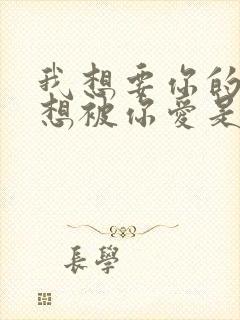 我想要你的
想被你愛是
長學